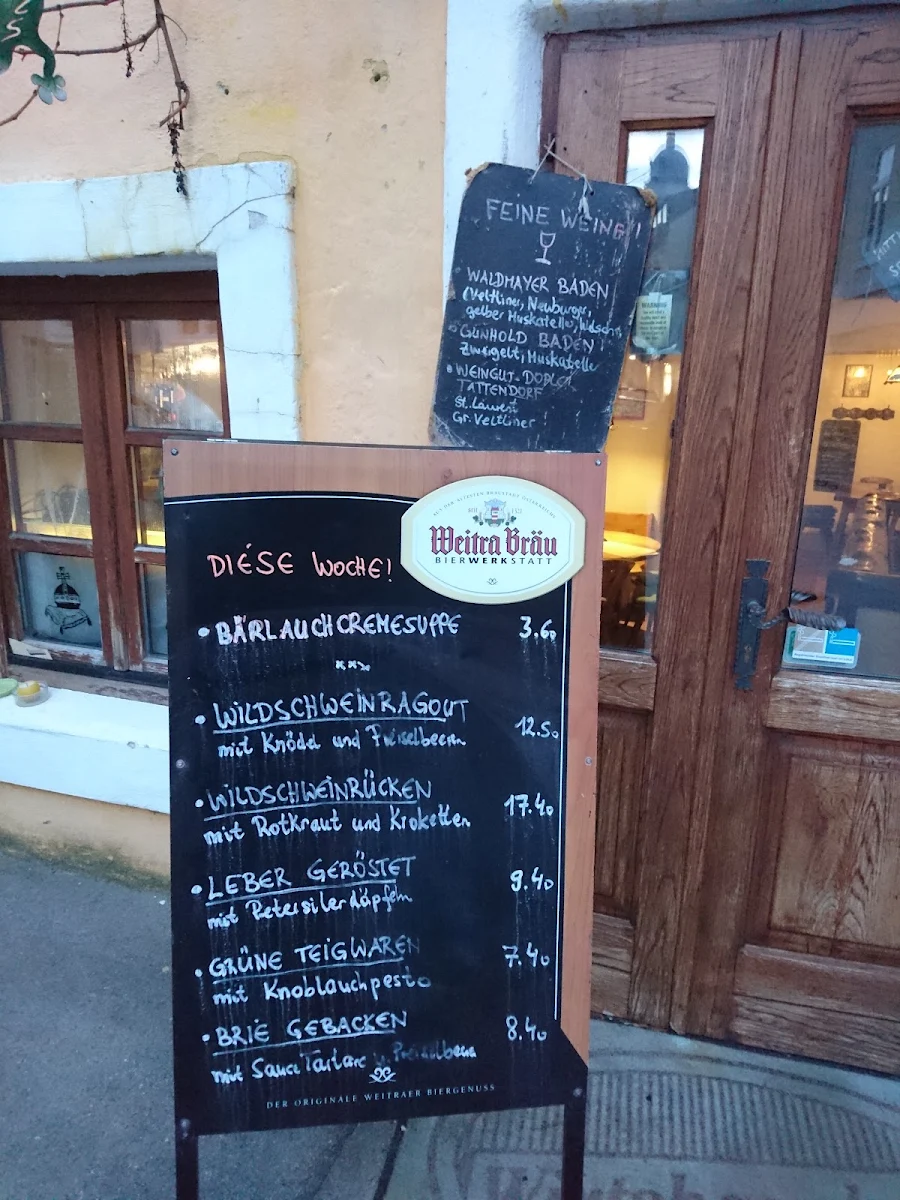 FEINE WEINE!!
WALDMAYER BADEN
(Veltliner, Neuburger,
gelber Muskateller,
• GUNHOLD BADEN
Zweigelt, Muskatelle
• WEINGUT-DOPLER
TATTENDORF
St. Laurent
Gr. Veltliner
Weitra Bräu
BIERWERKSTATT
DIESE WOCHE!
• BÄRLAUCHCREMESUPPE 3.60
• WILDSCHWEINRAGOUT 12.50
mit Knödel und Preiselbeeren
• WILDSCHWEINRÜCKEN 17.40
mit Rotkraut und Kroketten
• LEBER GERÖSTET 9.40
mit Petersilerdäpfeln
• GRÜNE TEIGWAREN 7.40
mit Knoblauchpesto
• BRIE GEBACKEN 8.40
mit Sauce Tartare u. Preiselbeeren
DER ORIGINALE WEITRAER BIERGENUSS